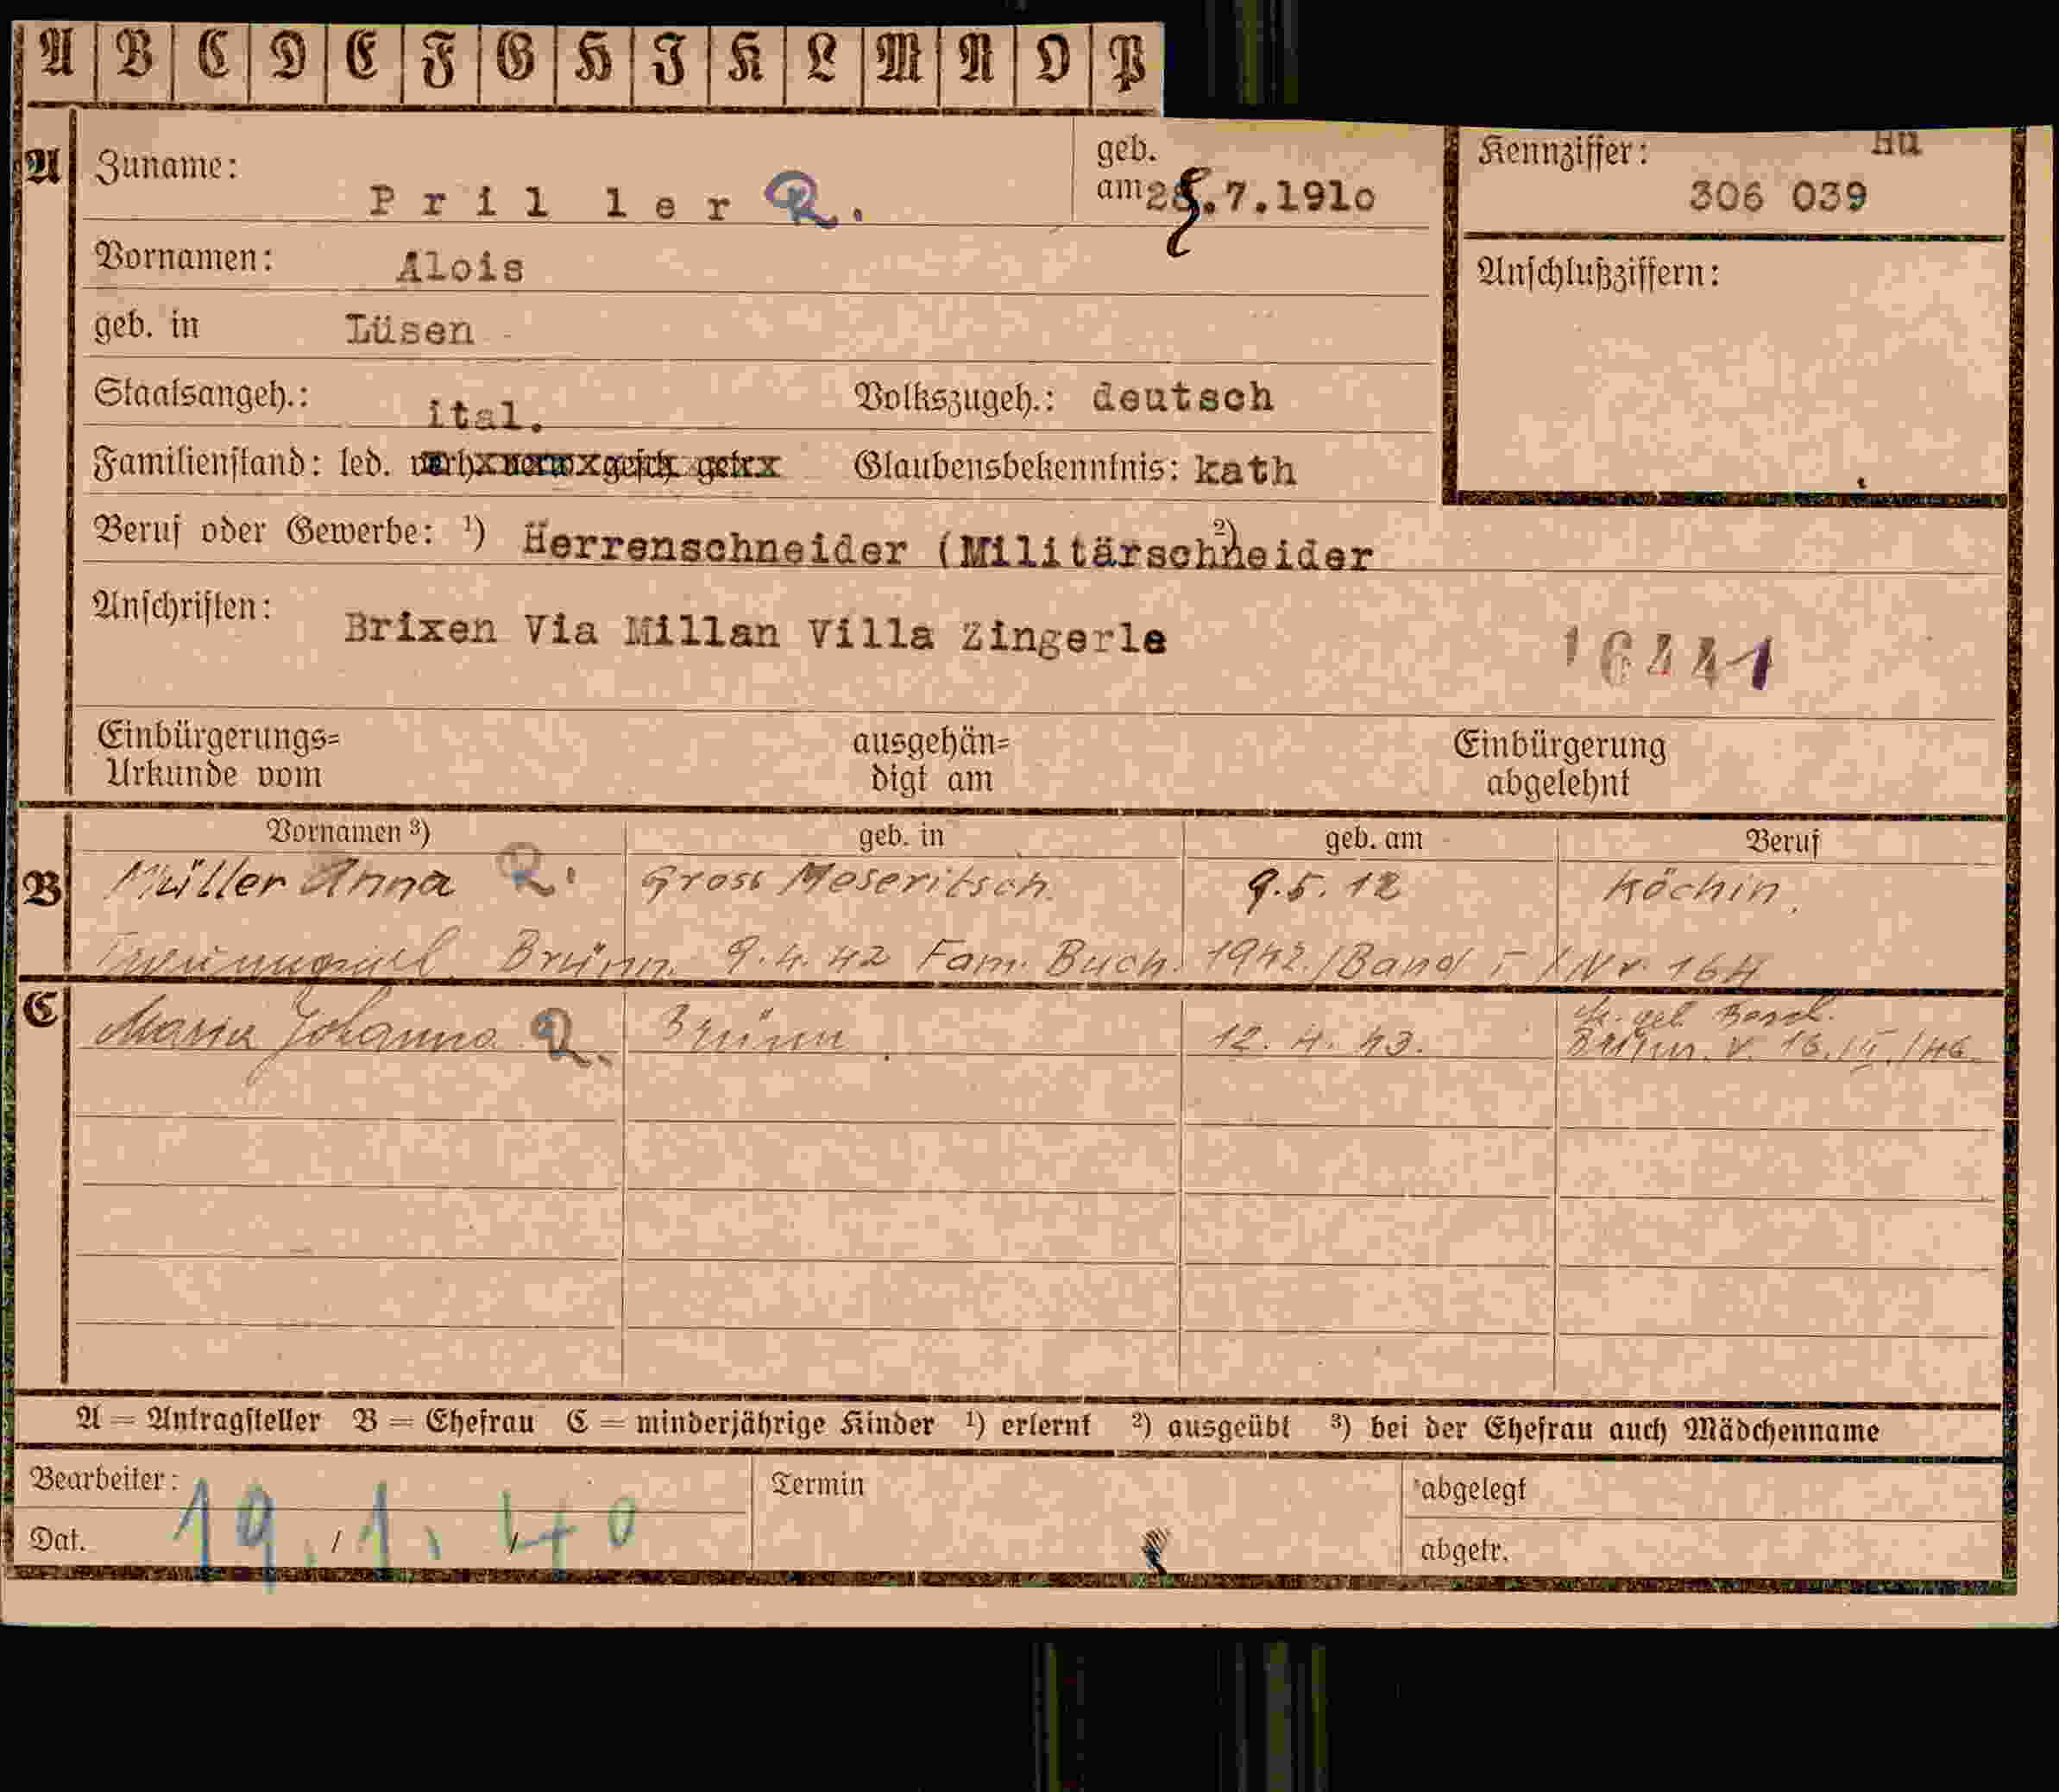 A B C D E F G H I K L M N O P
A Zuname: P r i l l e r R. geb. am 25.7.1910 Kennziffer: Hu 306 039
Vornamen: Alois
Anschlußziffern:
geb. in Lüsen
Staatsangeh.: ital. Volkszugeh.: deutsch
Familienstand: led. verh. verw. gesch. getr. Glaubensbekenntnis: kath
Beruf oder Gewerbe: ¹) Herrenschneider (Militärschneider ²)
Anschriften: Brixen Via Millan Villa Zingerle
16441
Einbürgerungs= ausgehän= Einbürgerung
Urkunde vom digt am abgelehnt
Vornamen ³) geb. in geb. am Beruf
B Müller Anna R. Gross Meseritsch. 9.5.12 Köchin.
Brünn. 9.4.42 Fam. Buch. 1942./Band I /Nr. 164
C Maria Johanna R. Brünn. 12.4.43.
Brünn. v. 16./II./46.
A = Antragsteller B = Ehefrau C = minderjährige Kinder ¹) erlernt ²) ausgeübt ³) bei der Ehefrau auch Mädchenname
Bearbeiter: Termin abgelegt
Dat. 19. / 1. / 40 abgetr.